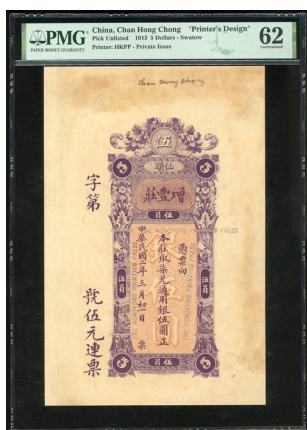 PMG
PAPER MONEY GUARANTY
China, Chan Hong Chong "Printer's Design"
Pick Unlisted 1913 5 Dollars - Swatow
Printer: HKPP - Private Issue
62
Uncirculated
Chan Hong Chong
伍
汕頭
增豐莊
伍員
字第
憑票向
本莊取柒兌通用銀伍圓正
中華民國二年三月初一日 票
號伍元連票
伍員
伍員
伍員